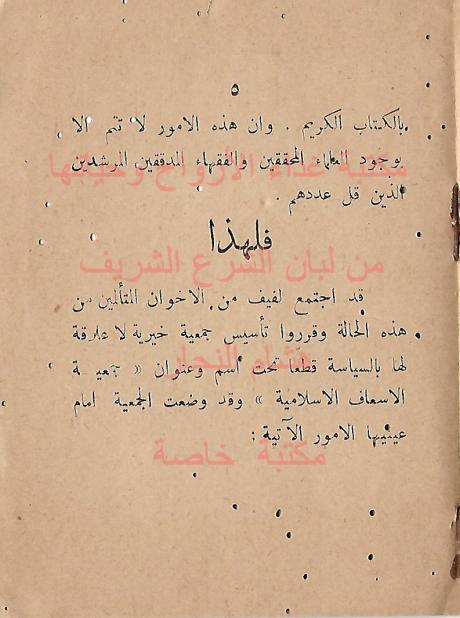 ٥
بالكتاب الكريم . وان هذه الامور لا تتم الا
بوجود العلماء المحققين والفقهاء المدققين المرشدين
الذين قل عددهم .
فلهذا
قد اجتمع لفيف من الاخوان المتألمين من
هذه الحالة وقرروا تأسيس جمعية خيرية لا علاقة
لها بالسياسة قطعاً تحت اسم وعنوان « جمعيـة
الاسعاف الاسلامية » وقد وضعت الجمعية امام
عينيها الامور الآتية :
مكتبة غذاء الأرواح وحياتها
من لبان الشرع الشريف
هشام النجار
مكتبة خاصة